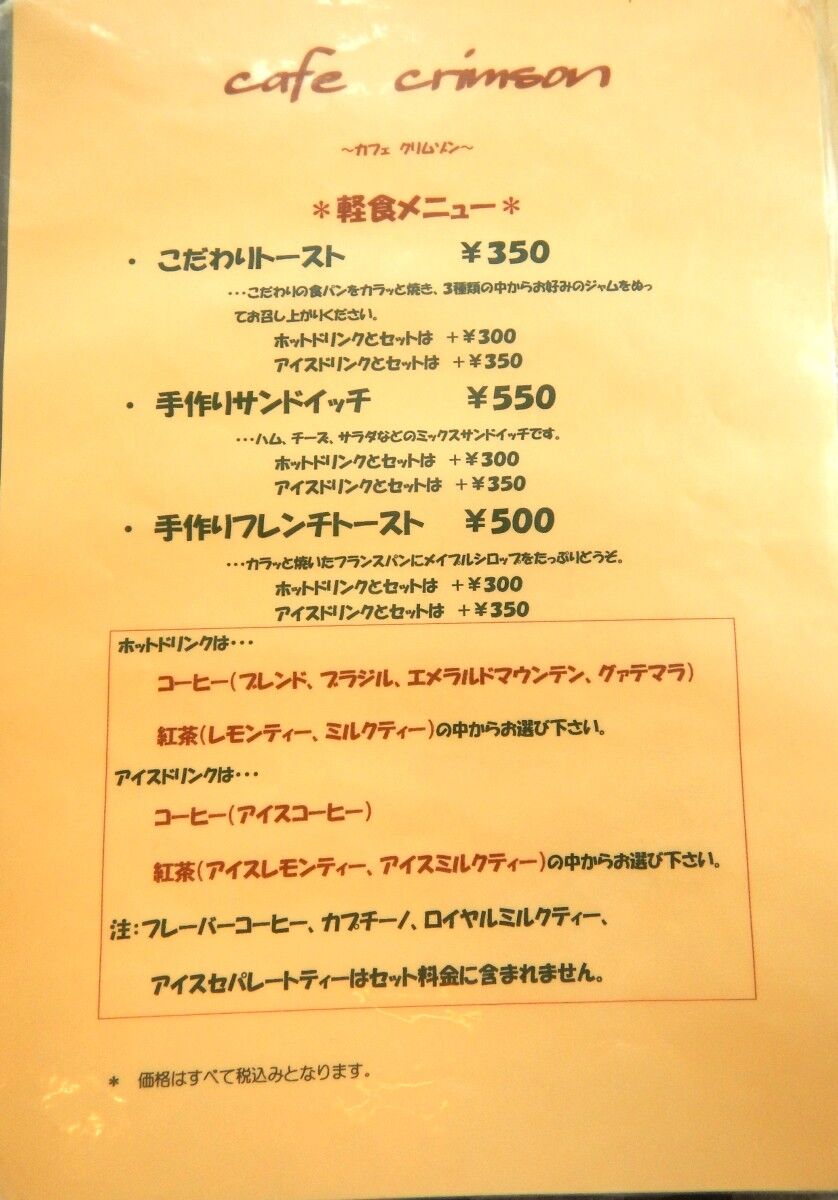 cafe crimson
～カフェ クリムゾン～
＊軽食メニュー＊
・ こだわりトースト ￥350
･･･こだわりの食パンをカラッと焼き、3種類の中からお好みのジャムをぬっ
てお召し上がりください。
ホットドリンクとセットは ＋￥300
アイスドリンクとセットは ＋￥350
・ 手作りサンドイッチ ￥550
･･･ハム、チーズ、サラダなどのミックスサンドイッチです。
ホットドリンクとセットは ＋￥300
アイスドリンクとセットは ＋￥350
・ 手作りフレンチトースト ￥500
･･･カラッと焼いたフランスパンにメイプルシロップをたっぷりどうぞ。
ホットドリンクとセットは ＋￥300
アイスドリンクとセットは ＋￥350
ホットドリンクは･･･
コーヒー(ブレンド、ブラジル、エメラルドマウンテン、グァテマラ)
紅茶(レモンティー、ミルクティー)の中からお選び下さい。
アイスドリンクは･･･
コーヒー(アイスコーヒー)
紅茶(アイスレモンティー、アイスミルクティー)の中からお選び下さい。
注：フレーバーコーヒー、カプチーノ、ロイヤルミルクティー、
アイスセパレートティーはセット料金に含まれません。
＊ 価格はすべて税込みとなります。